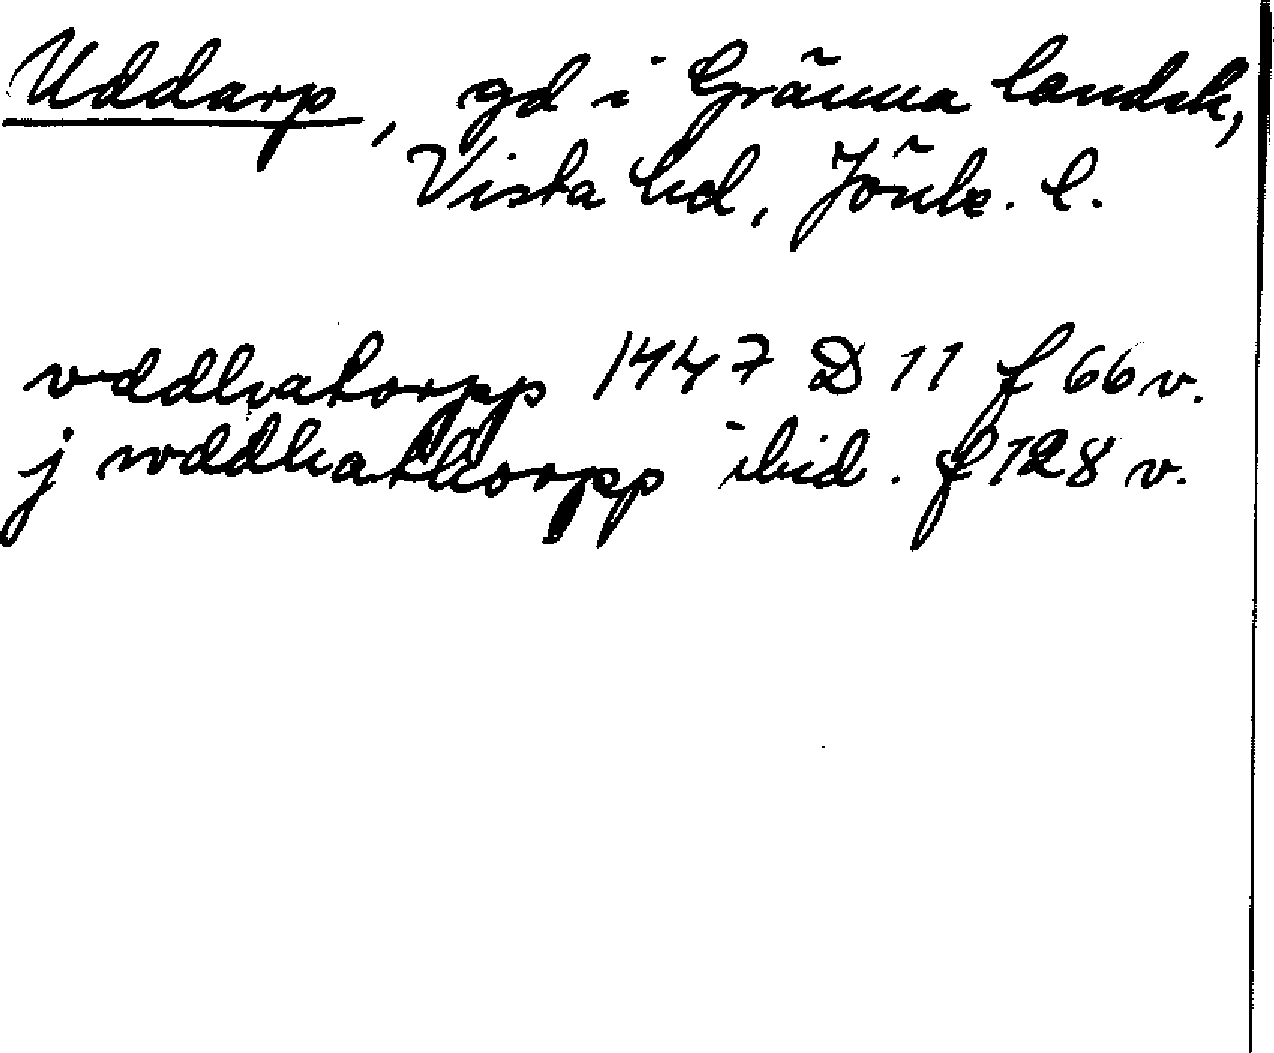 Uddarp, gd i Gränna landsk,
Vista hd, Jönk. l.
vddhatorpp 1447 D 11 f 66 v.
j wddhathorpp ibid. f 128 v.